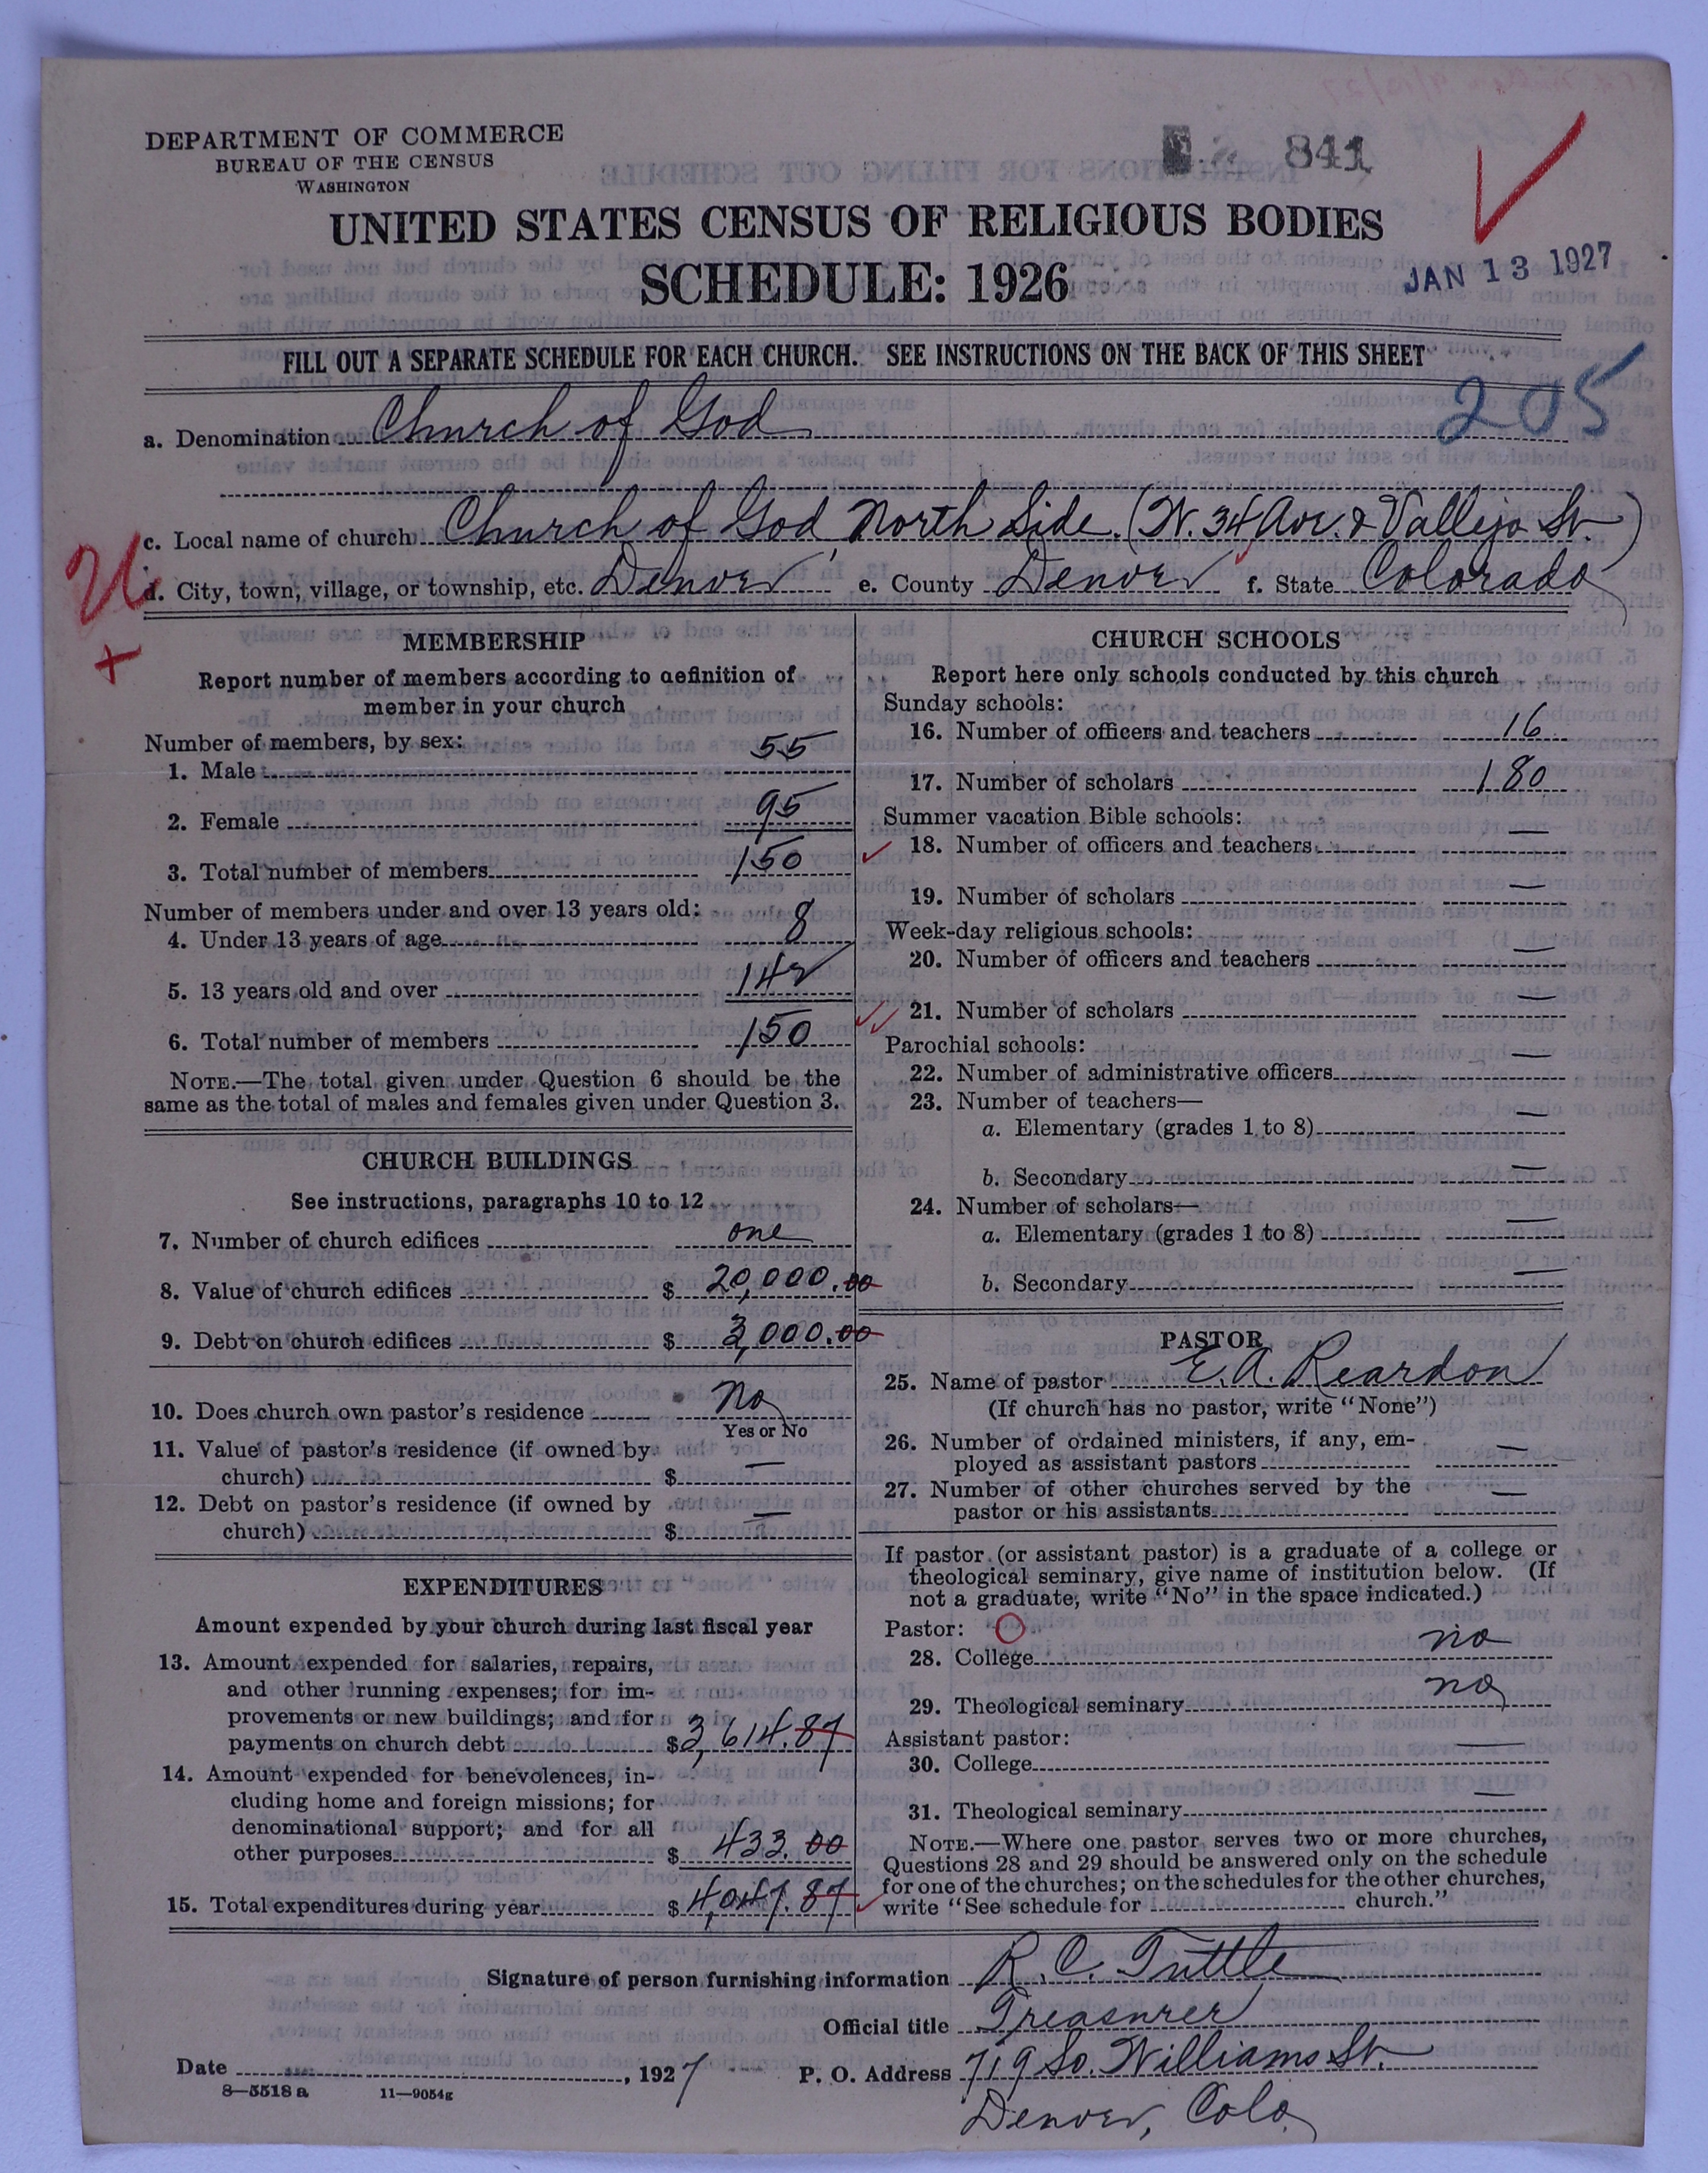 DEPARTMENT OF COMMERCE
BUREAU OF THE CENSUS
WASHINGTON
841
UNITED STATES CENSUS OF RELIGIOUS BODIES
SCHEDULE: 1926
JAN 13 1927
FILL OUT A SEPARATE SCHEDULE FOR EACH CHURCH. SEE INSTRUCTIONS ON THE BACK OF THIS SHEET
205
a. Denomination Church of God
c. Local name of church Church of God, North Side. (W. 34 Ave. & Vallejo St.)
d. City, town, village, or township, etc. Denver e. County Denver f. State Colorado
MEMBERSHIP
Report number of members according to definition of
member in your church
Number of members, by sex:
1. Male 55
2. Female 95
3. Total number of members 150
Number of members under and over 13 years old:
4. Under 13 years of age 8
5. 13 years old and over 142
6. Total number of members 150
NOTE.—The total given under Question 6 should be the
same as the total of males and females given under Question 3.
CHURCH BUILDINGS
See instructions, paragraphs 10 to 12
7. Number of church edifices one
8. Value of church edifices $ 20,000.00
9. Debt on church edifices $ 3,000.00
10. Does church own pastor's residence No
Yes or No
11. Value of pastor's residence (if owned by
church) $ —
12. Debt on pastor's residence (if owned by
church) $ —
EXPENDITURES
Amount expended by your church during last fiscal year
13. Amount expended for salaries, repairs,
and other running expenses; for im-
provements or new buildings; and for
payments on church debt $3,614.87
14. Amount expended for benevolences, in-
cluding home and foreign missions; for
denominational support; and for all
other purposes $ 433.00
15. Total expenditures during year $4,047.87
CHURCH SCHOOLS
Report here only schools conducted by this church
Sunday schools:
16. Number of officers and teachers 16
17. Number of scholars 180
Summer vacation Bible schools:
18. Number of officers and teachers —
19. Number of scholars —
Week-day religious schools:
20. Number of officers and teachers —
21. Number of scholars —
Parochial schools:
22. Number of administrative officers —
23. Number of teachers—
a. Elementary (grades 1 to 8) —
b. Secondary —
24. Number of scholars—
a. Elementary (grades 1 to 8) —
b. Secondary —
PASTOR
25. Name of pastor E. A. Reardon
(If church has no pastor, write "None")
26. Number of ordained ministers, if any, em-
ployed as assistant pastors —
27. Number of other churches served by the
pastor or his assistants —
If pastor (or assistant pastor) is a graduate of a college or
theological seminary, give name of institution below. (If
not a graduate, write "No" in the space indicated.)
Pastor:
28. College no
29. Theological seminary no
Assistant pastor:
30. College —
31. Theological seminary —
NOTE.—Where one pastor serves two or more churches,
Questions 28 and 29 should be answered only on the schedule
for one of the churches; on the schedules for the other churches,
write "See schedule for church."
Signature of person furnishing information R. C. Tuttle
Official title Treasurer
Date , 1927 P. O. Address 719 So. Williams St.
8—5518 a 11—9054g
Denver, Colo.